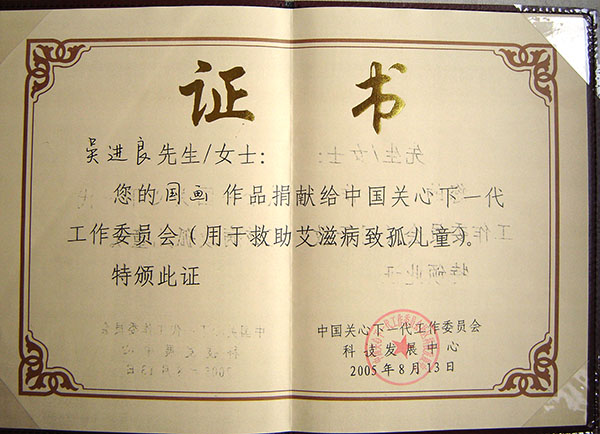 证 书
吴进良先生/女士:
您的国画 作品捐献给中国关心下一代
工作委员会(用于救助艾滋病致孤儿童)。
特颁此证
中国关心下一代工作委员会
科技发展中心
2005年8月13日